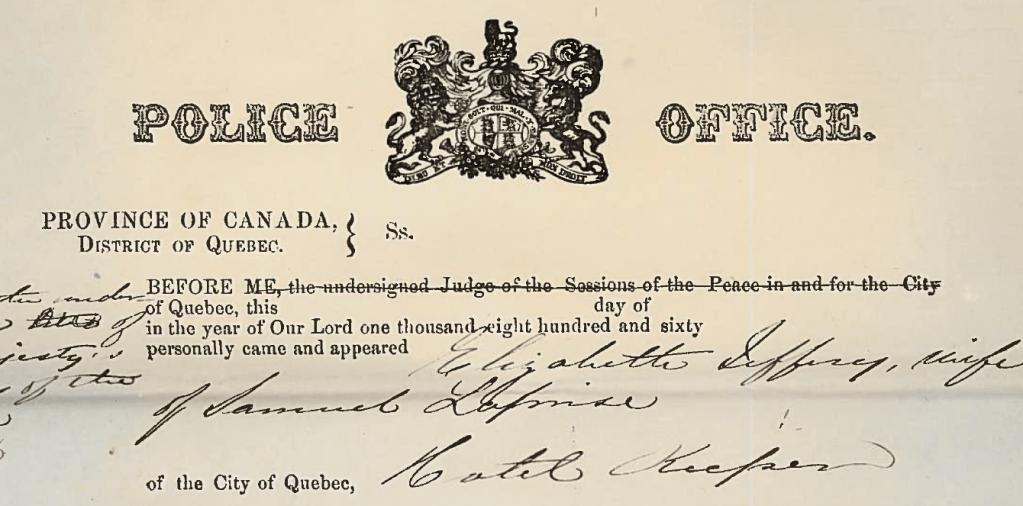 POLICE OFFICE.
SOIT · QUI · MAL
DIEU ET MON DROIT
PROVINCE OF CANADA, } Ss.
DISTRICT OF QUEBEC.
BEFORE ME, the undersigned Judge of the Sessions of the Peace in and for the City
of Quebec, this day of
of
in the year of Our Lord one thousand eight hundred and sixty
personally came and appeared Elizabeth Jeffery, wife
of the
of Samuel Laprise
of the City of Quebec, Hotel Keeper